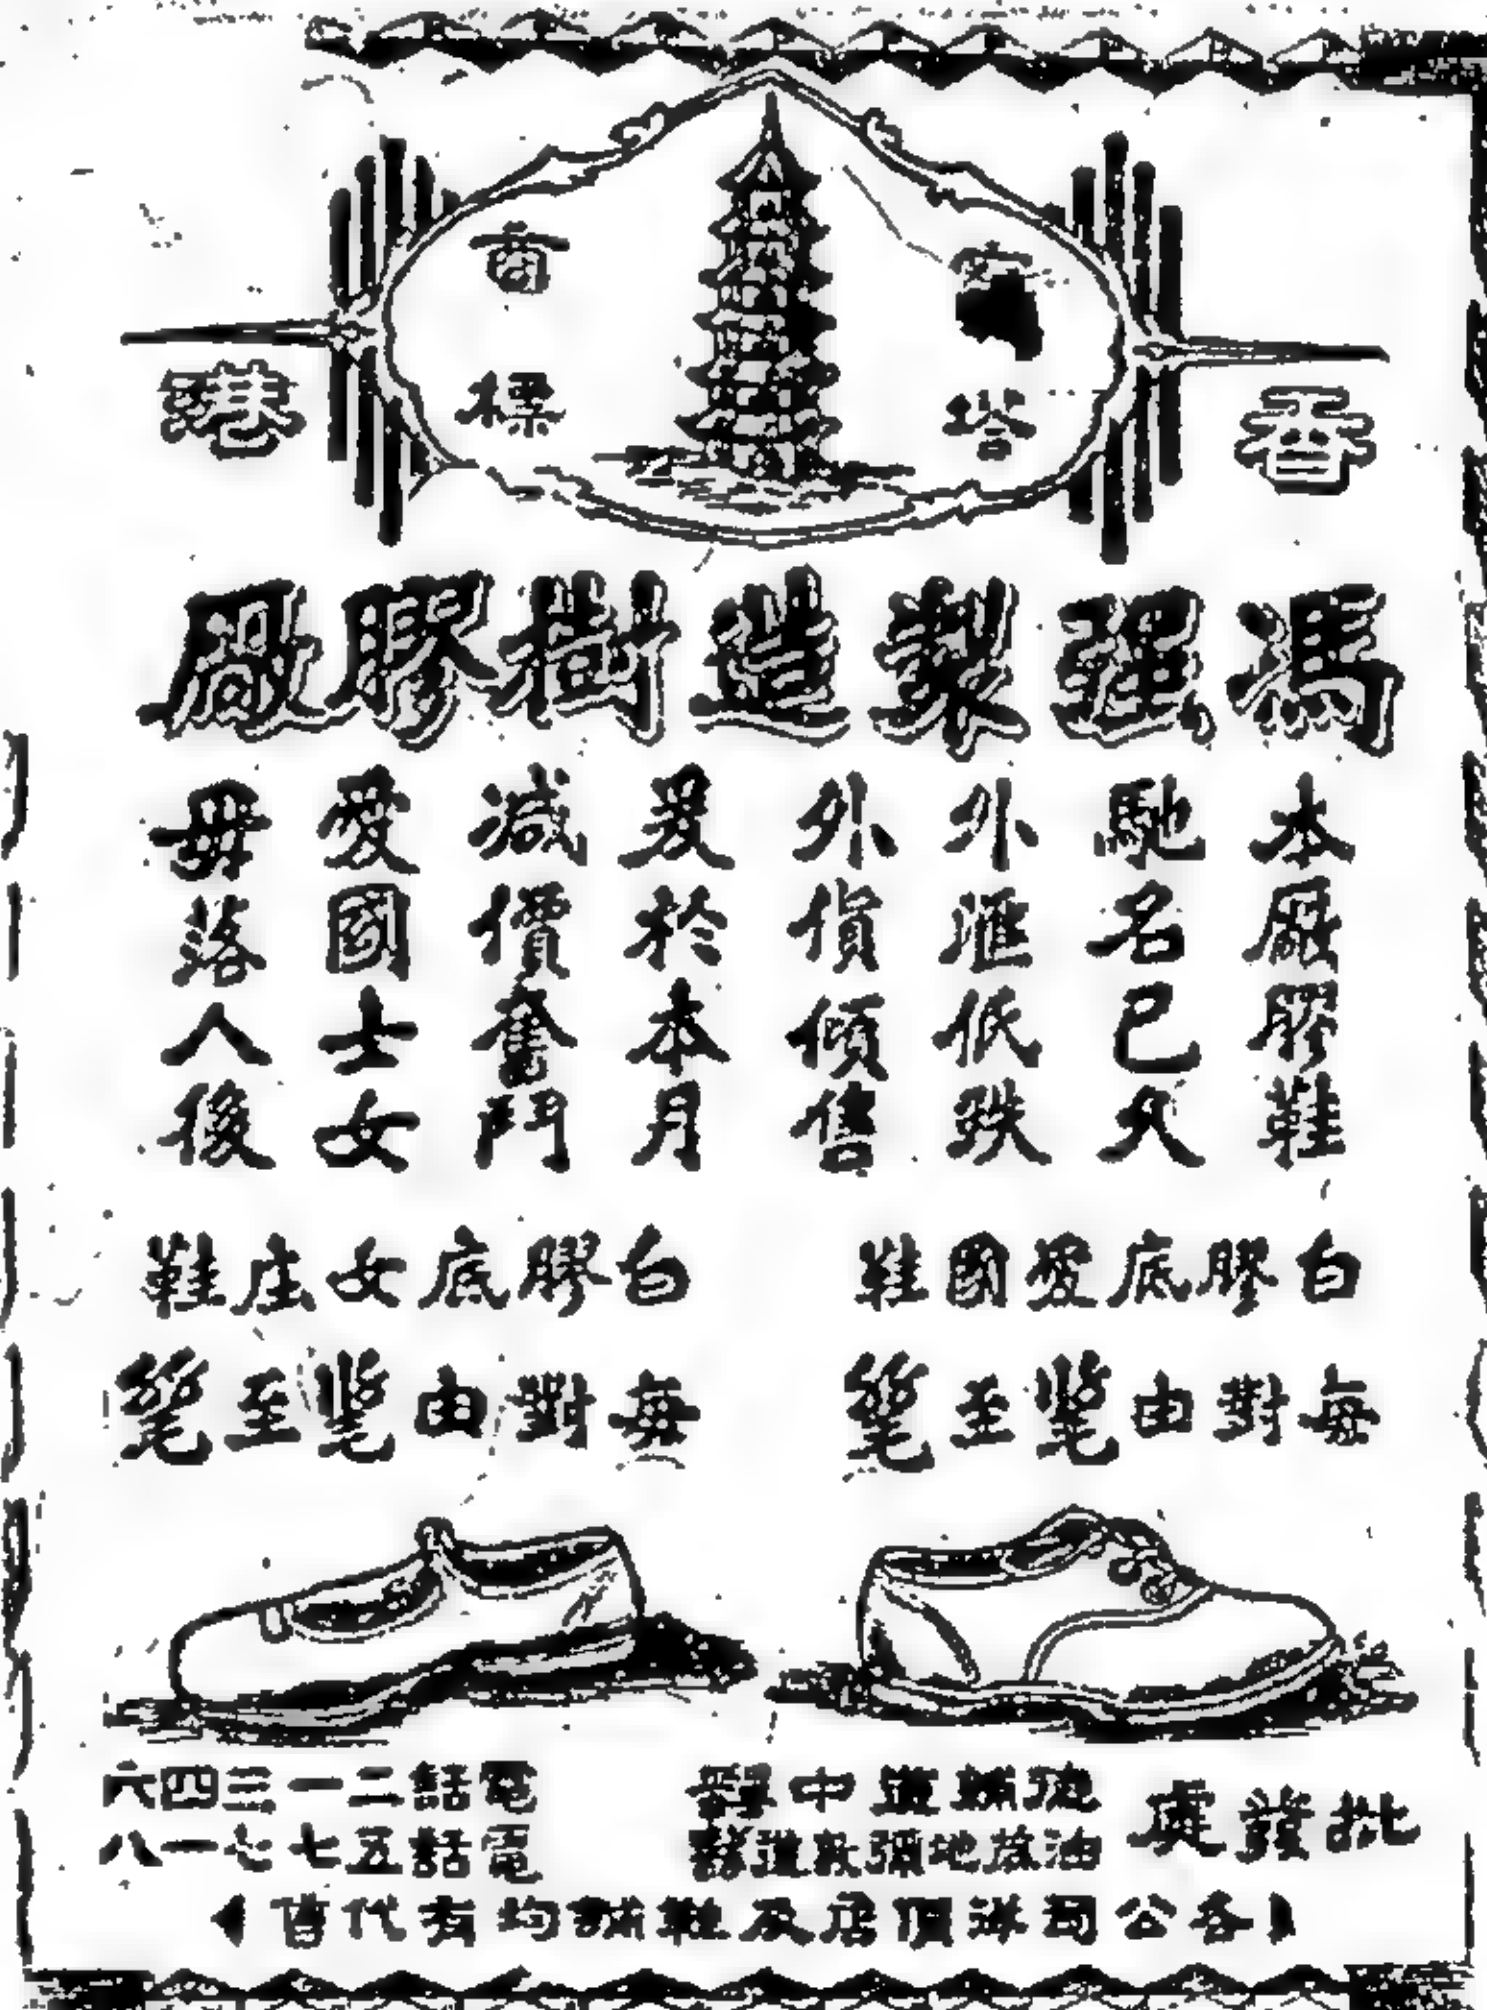 寶塔
商標
香港
馮強製造樹膠廠
本廠膠鞋
馳名已久
外滙低跌
外貨傾售
爰於本月
減價奮鬥
愛國士女
毋落人後
白膠底愛國鞋
每對由 至
白膠底女庄鞋
每對由 至
批發處
德輔道中
油蔴地彌敦道
電話二一三四六
電話五七七一八
各公司洋貨店及鞋舖均有代售